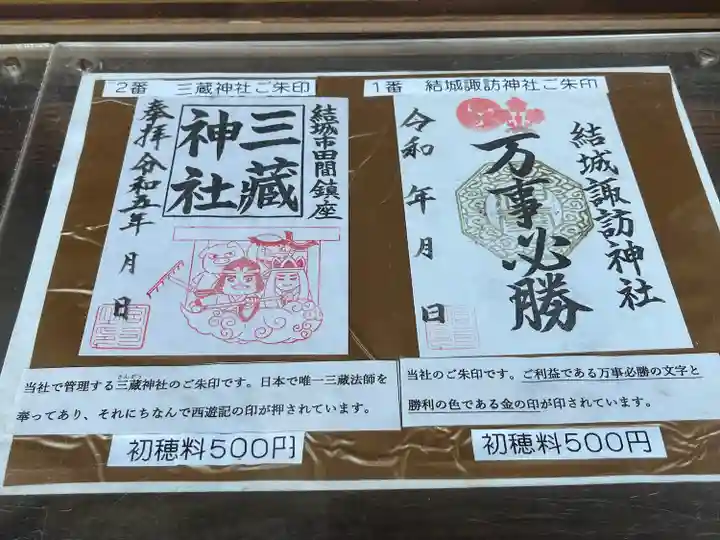 2番 三蔵神社ご朱印
奉拝 令和五年 月 日
三藏
神社
結城市田間鎮座
当社で管理する三蔵神社のご朱印です。日本で唯一三蔵法師を
奉ってあり、それにちなんで西遊記の印が押されています。
初穂料500円
1番 結城諏訪神社ご朱印
結城諏訪神社
万事必勝
令和 年 月 日
当社のご朱印です。ご利益である万事必勝の文字と
勝利の色である金の印が印されています。
初穂料500円